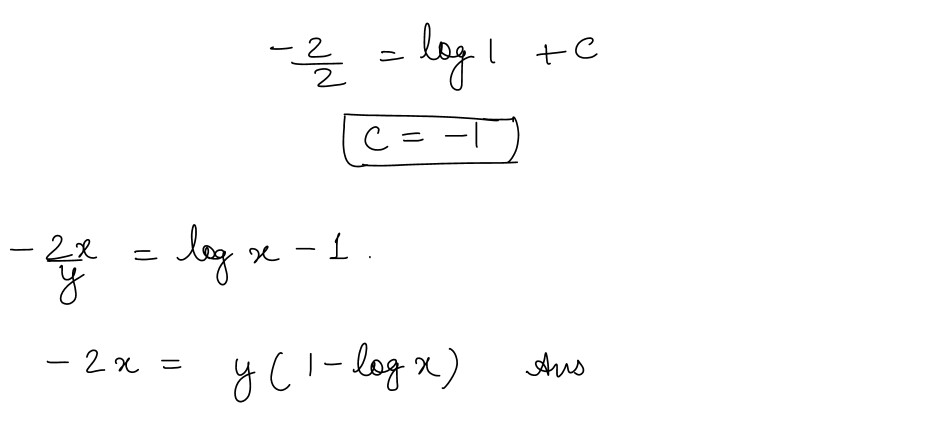 -2/2 = log 1 + C
C = -1
-2x/y = log x - 1.
-2x = y(1 - log x) Ans